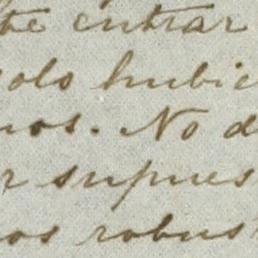 te entrar
solo hubie
nos. No d
r supues
os robus